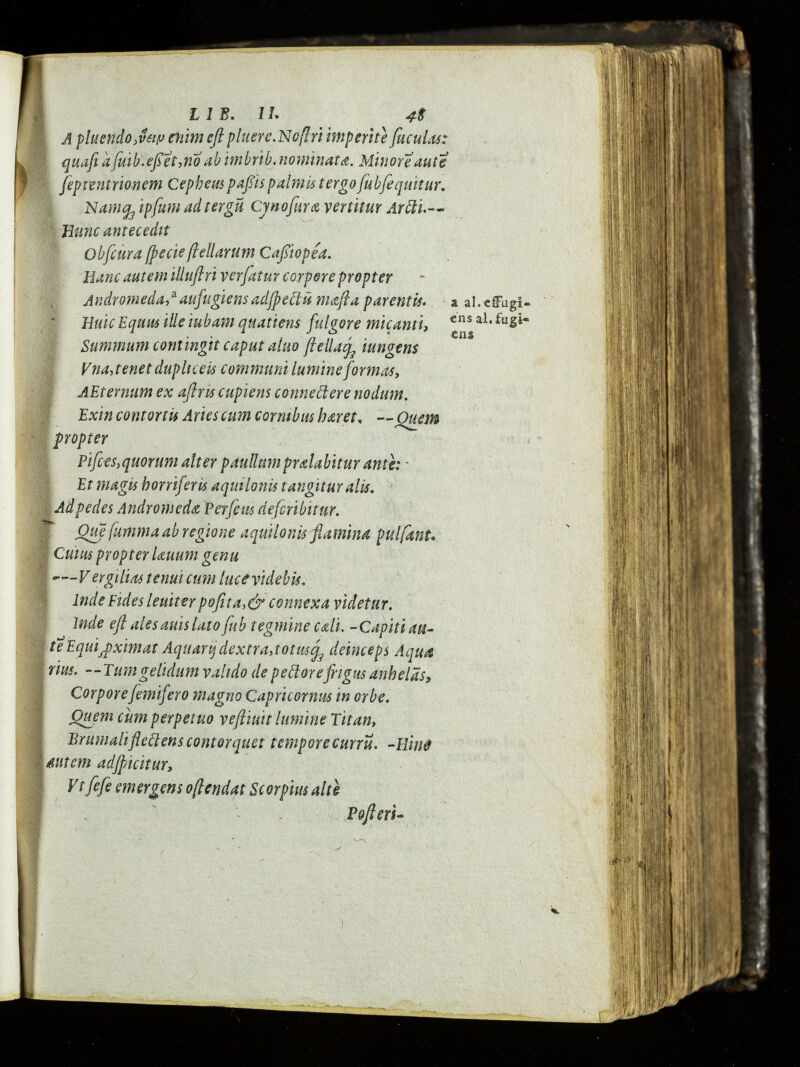 LIB. II. 48
A pluendo, ὕειν enim est pluere. Nostri imperitè suculas:
quasi à suib. essēt, nō ab imbrib. nominatæ. Minorē autē
septentrionem Cepheus paßis palmis tergo subsequitur.
Namq; ipsum ad tergū Cynosuræ vertitur Arcti.--
Hunc antecedit
Obscura specie stellarum Caßiopéa.
Hanc autem illustri versatur corpore propter
Andromeda,ª aufugiens adspectū mæsta parentis.
a al. effugi-
Huic Equus ille iubam quatiens fulgore micanti,
ens al. fugi-
ens
Summum contingit caput aluo stellaq; iungens
Vna, tenet dupliceis communi lumine formas,
AEternum ex astris cupiens connectere nodum.
Exin contortis Aries cum cornibus hæret. --Quem
propter
Pisces, quorum alter paullum prælabitur antè:
Et magis horriferis aquilonis tangitur alis.
Ad pedes Andromedæ Perseus describitur.
Quē summa ab regione aquilonis flamina pulsant.
Cuius propter læuum genu
--Vergilias tenui cum luce videbis.
Inde Fides leuiter posita, & connexa videtur.
Inde est ales auis lato sub tegmine cæli. -Capiti au-
tē Equi ꝓximat Aquarij dextra, totusq; deinceps Aqua
rius. --Tum gelidum valido de pectore frigus anhelās,
Corpore semifero magno Capricornus in orbe.
Quem cùm perpetuo vestiuit lumine Titan,
Brumali flectens contorquet tempore currū. -Hinc
autem adspicitur,
Vt sese emergens ostendat Scorpius altè
Posteri-